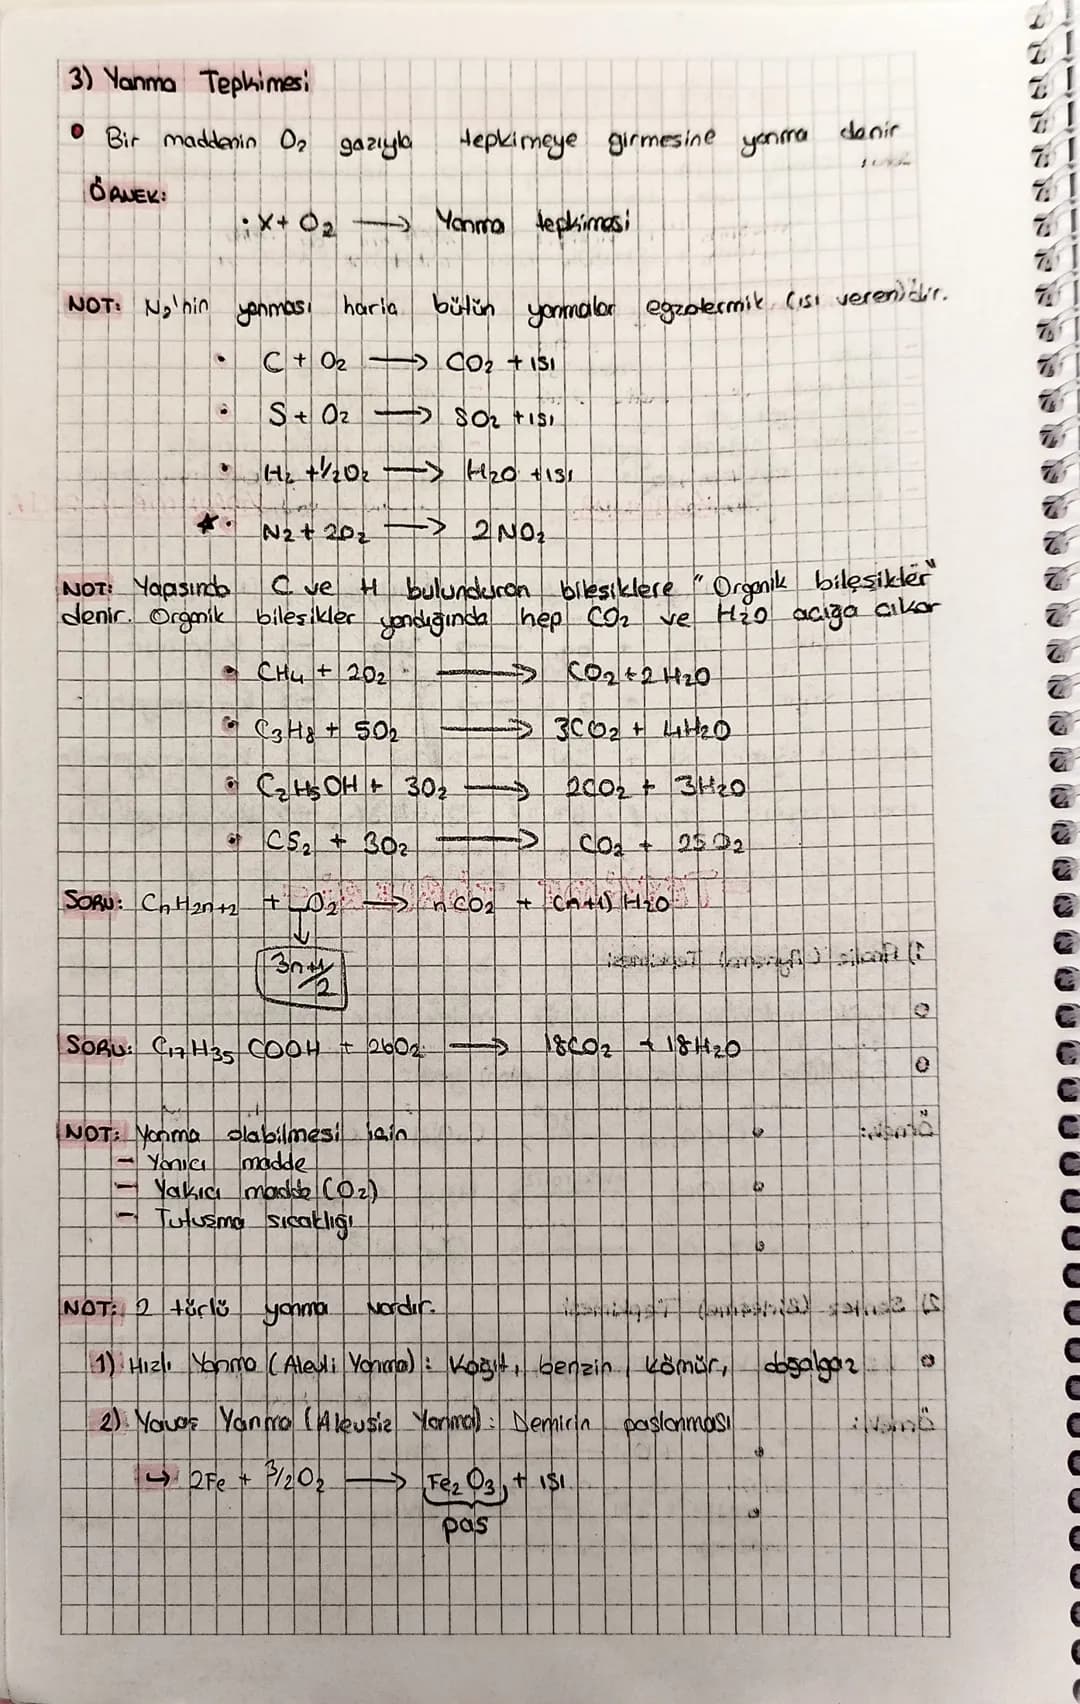 3) Yanma Tepkimesi
• Bir maddenin O₂ gazıyla tepkimeye girmesine yanma denir
ÖRNEK:
: X + O₂ → Yanma tepkimesi
NOT: N₂'nin yanması hariç bütün yanmalar egzotermik (ısı veren)dir.
• C + O₂ → CO₂ + ısı
• S + O₂ → SO₂ + ısı
• H₂ + 1/2O₂ → H₂O + ısı
★• N₂ + 2O₂ → 2NO₂
NOT: Yapısında C ve H bulunduran bileşiklere "Organik bileşikler"
denir. Organik bileşikler yandığında hep CO₂ ve H₂O açığa çıkar
• CH₄ + 2O₂ → CO₂ + 2H₂O
• C₃H₈ + 5O₂ → 3CO₂ + 4H₂O
• C₂H₅OH + 3O₂ → 2CO₂ + 3H₂O
• CS₂ + 3O₂ → CO₂ + 2SO₂
SORU: CnH2n+2 + _O₂ → nCO₂ + (n+1) H₂O
↓
3n+1/2
SORU: C₁₇H₃₅COOH + 26O₂ → 18CO₂ + 18H₂O
NOT: Yanma olabilmesi için
– Yanıcı madde
– Yakıcı madde (O₂)
– Tutuşma sıcaklığı
NOT: 2 türlü yanma vardır.
1) Hızlı Yanma (Alevli Yanma): Kağıt, benzin, kömür, doğalgaz
2) Yavaş Yanma (Alevsiz Yanma): Demirin paslanması
↪ 2Fe + 3/2O₂ → Fe₂O₃ + ısı
pas